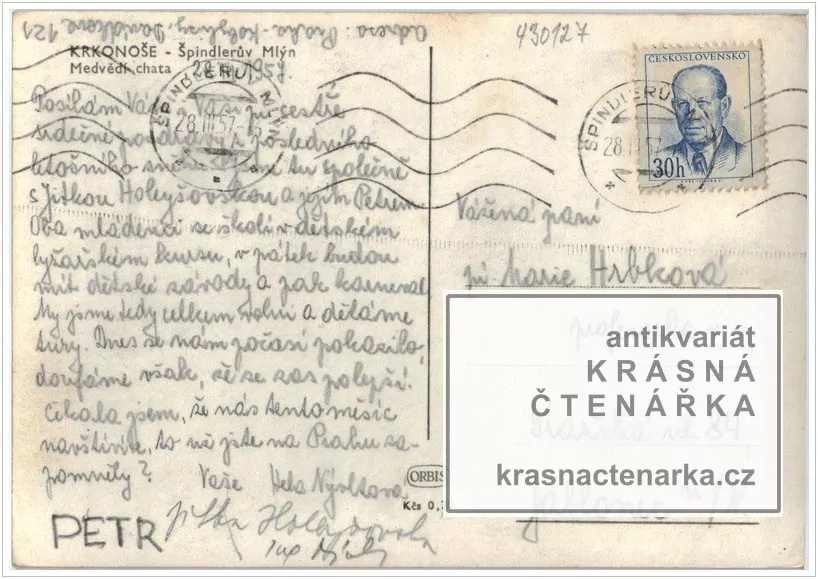 Adresa: Praha - Kobylisy, Davidkova 121
430127
KRKONOŠE - Špindlerův Mlýn
Medvědí chata
28. III. 1957.
ŠPINDLERŮV MLÝN
28.III.57
ČESKOSLOVENSKO
30h
ŠPINDLERŮV MLÝN
28.III.57
Posílám Vám a Vaší pí sestře
srdečné pozdravy z posledního
letošního sněhu. Jsem tu společně
s Jitkou Holeyšovskou a jejím Petrem.
Oba mládenci se školí v dětském
lyžařském kursu, v pátek budou
mít dětské závody a pak karneval.
My jsme tedy celkem volni a děláme
túry. Dnes se nám počasí pokazilo,
doufáme však, že se zas polepší.
Čekala jsem, že nás tento měsíc
navštívíte, to už jste na Prahu za-
pomněly?
Vaše Hela
PETR
Jitka
Vážená paní
pí Marie Hrbková
84
Jablonec n/N.
ORBIS
Kčs 0,
antikvariát
KRÁSNÁ
ČTENÁŘKA
krasnactenarka.cz